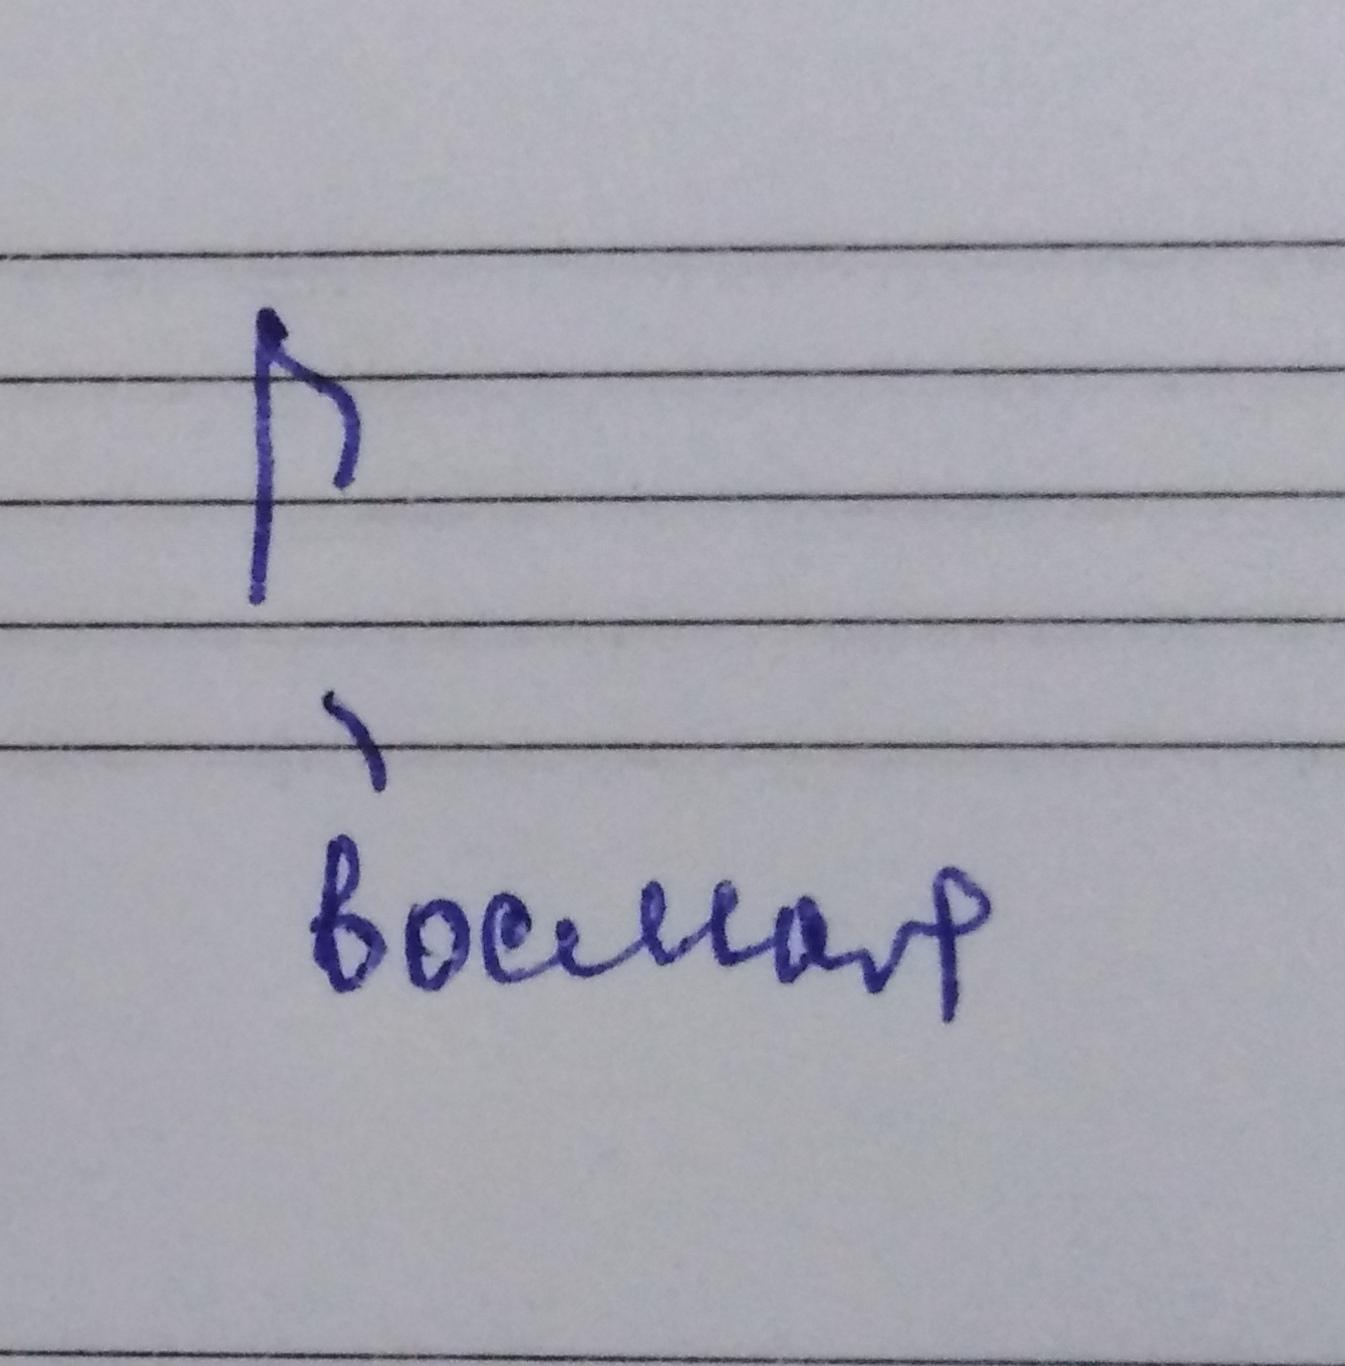 восмая